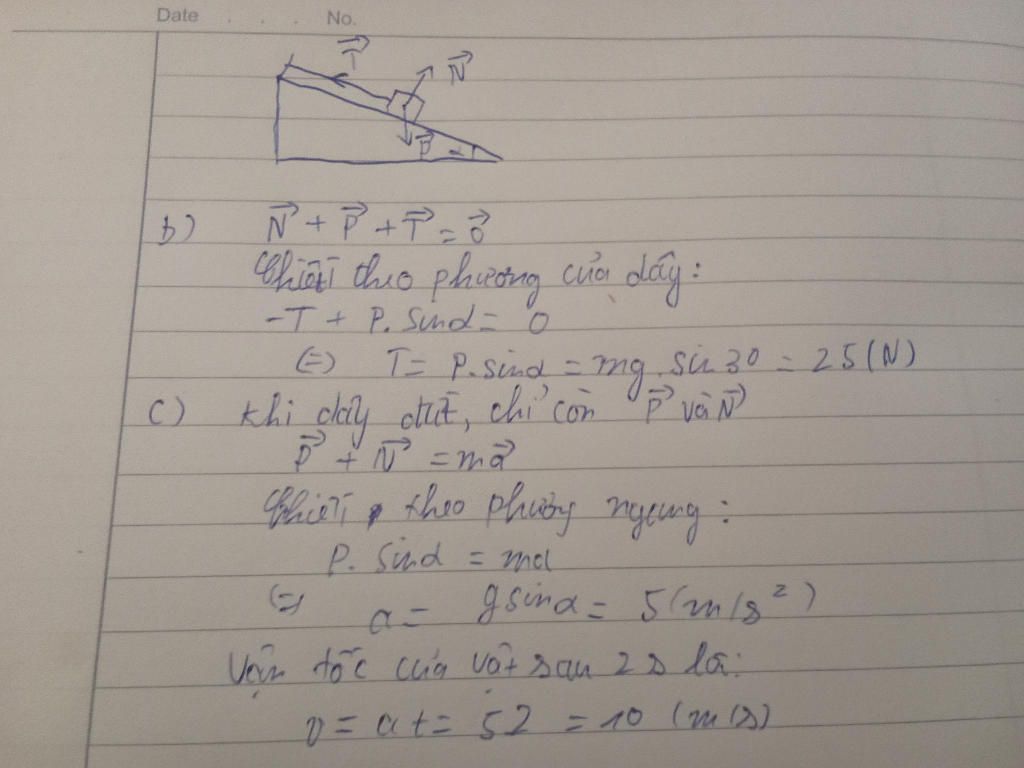 Date . . . No.
T⃗
N⃗
P⃗
α
b) N⃗ + P⃗ + T⃗ = 0⃗
Chiếu theo phương của dây:
-T + P. sinα = 0
(=) T = P.sinα = mg.sin 30 = 25(N)
c) Khi dây đứt, chỉ còn P⃗ và N⃗
P⃗ + N⃗ = ma⃗
Chiếu theo phương ngang:
P. sinα = ma
(=) a = gsinα = 5(m/s²)
Vận tốc của vật sau 2s là:
v = at = 52 = 10 (m/s)